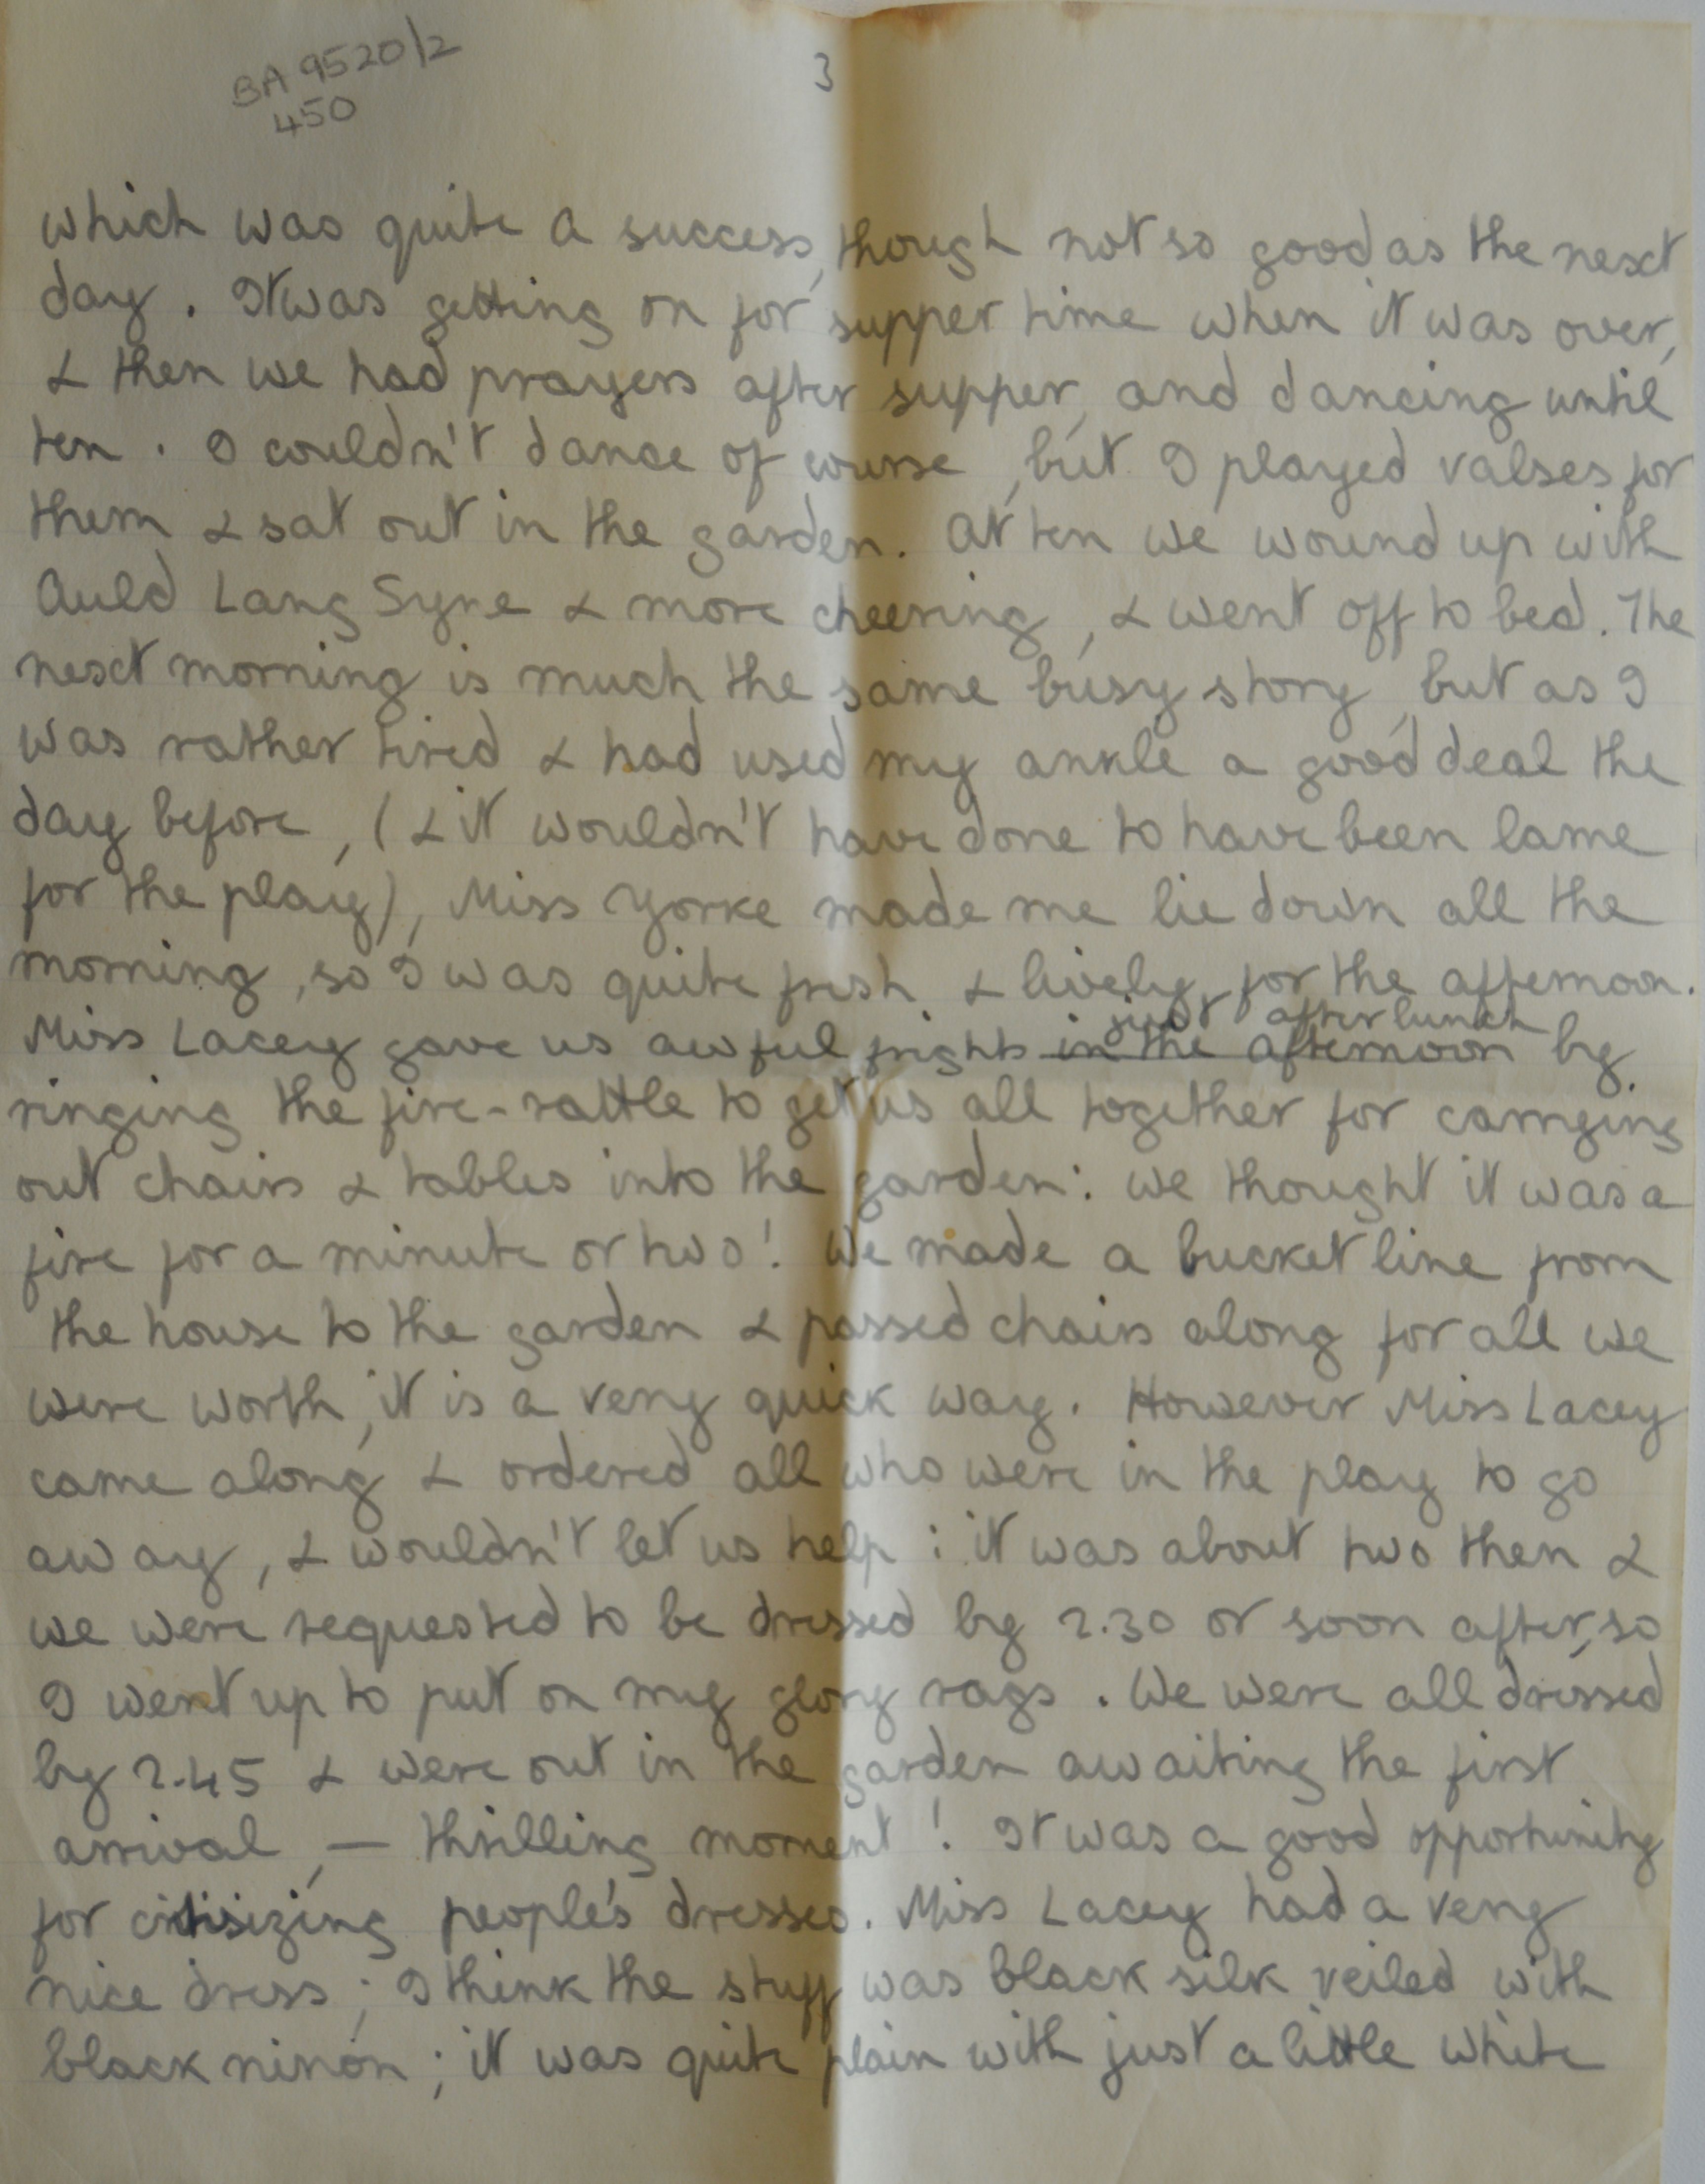 BA 9520/2
450
3
which was quite a success, though not so good as the next
day. It was getting on for supper time when it was over,
& then we had prayers after supper, and dancing until
ten. I couldn't dance of course, but I played valses for
them & sat out in the garden. At ten we wound up with
Auld Lang Syne & more cheering, & went off to bed. The
next morning is much the same busy story, but as I
was rather tired & had used my ankle a good deal the
day before, (& it wouldn't have done to have been lame
for the play), Miss Yorke made me lie down all the
morning, so I was quite fresh & lively for the afternoon.
just after lunch
Miss Lacey gave us awful fright in the afternoon by
ringing the fire-rattle to get us all together for carrying
out chairs & tables into the garden: we thought it was a
fire for a minute or two! We made a bucket line from
the house to the garden & passed chairs along for all we
were worth, it is a very quick way. However Miss Lacey
came along & ordered all who were in the play to go
away, & wouldn't let us help: it was about two then &
we were requested to be dressed by 2.30 or soon after, so
I went up to put on my glory rags. We were all dressed
by 2.45 & were out in the garden awaiting the first
arrival, — thrilling moment! It was a good opportunity
for critisizing people's dresses. Miss Lacey had a very
nice dress; I think the stuff was black silk veiled with
black ninon; it was quite plain with just a little white